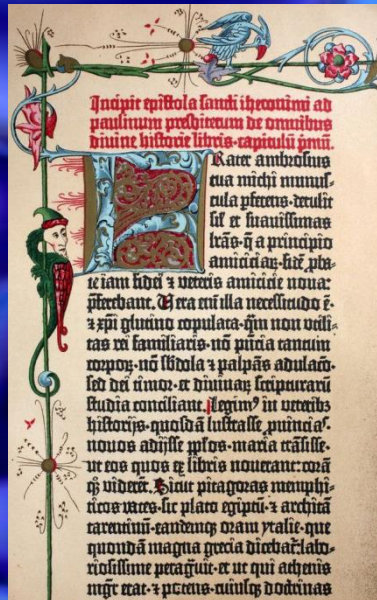 Incipit epistola sancti iheronimi ad
paulinum presbiterum de omnibus
divine historie libris· capitulū pmū.
Frater ambrosius
tua michi munus-
cula pferens· detulit
sil et suauissimas
lrās· q̄ a principio
amicicia℞· fidē pba-
te iam fidei ⁊ veteris amicicie noua:
pferebant. Uera enī illa necessitudo ē·
⁊ xpī glutino copulata· q̄m non vtili-
tas rei familiaris· nō pñcia tantum
corpo℞· nō sbdola ⁊ palpās adulacō·
sed dei timor· et diuina℞ scripturarū
studia conciliant. Legim⁹ in veterib⁊
historijs· quosdā lustrasse puincias·
nouos adijsse pplos· maria trāsisse·
ut eos quos ex libris nouerant: corā
q̄⁊ viderēt. Sicut pitagoras memphi-
ticos vates· sic plato egiptū· ⁊ architā
tarentinū· eandemq⁊ oram ytalie· que
quondā magna grecia dicebat᷑: labo-
riosissime peragrauit· et ut qui athenis
mgr̄ erat· ⁊ potens· cuiusq⁊ doctrinas